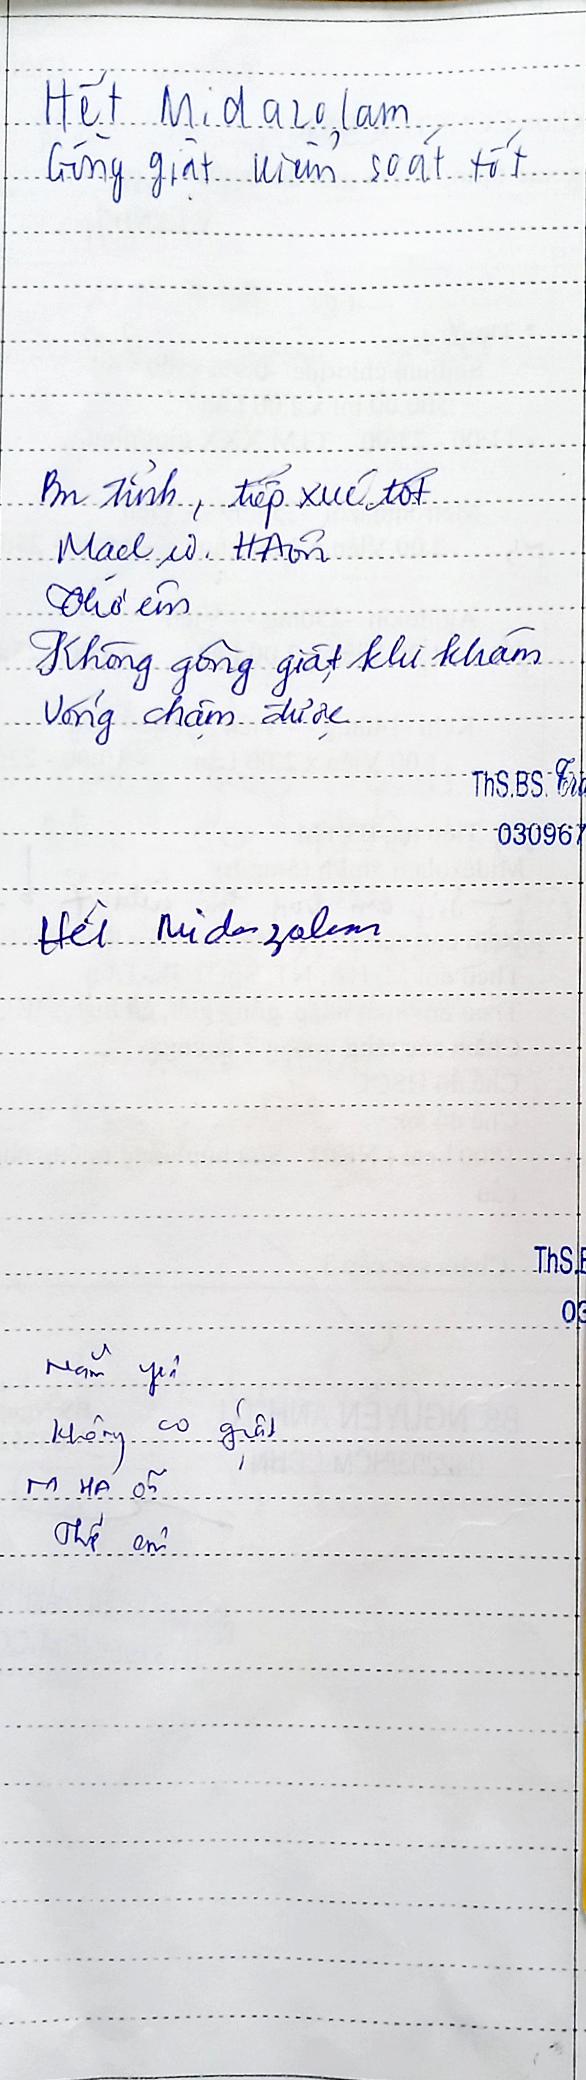 Hết Midazolam
Gồng giật kiểm soát tốt
Bn tỉnh, tiếp xúc tốt
HA ổn
Thở êm
Không gồng giật khi khám
Uống chậm được
ThS.BS.
030967
Hết Midazolam
ThS.B
03
Nằm yên
không co giật
M HA ổn
Thở êm